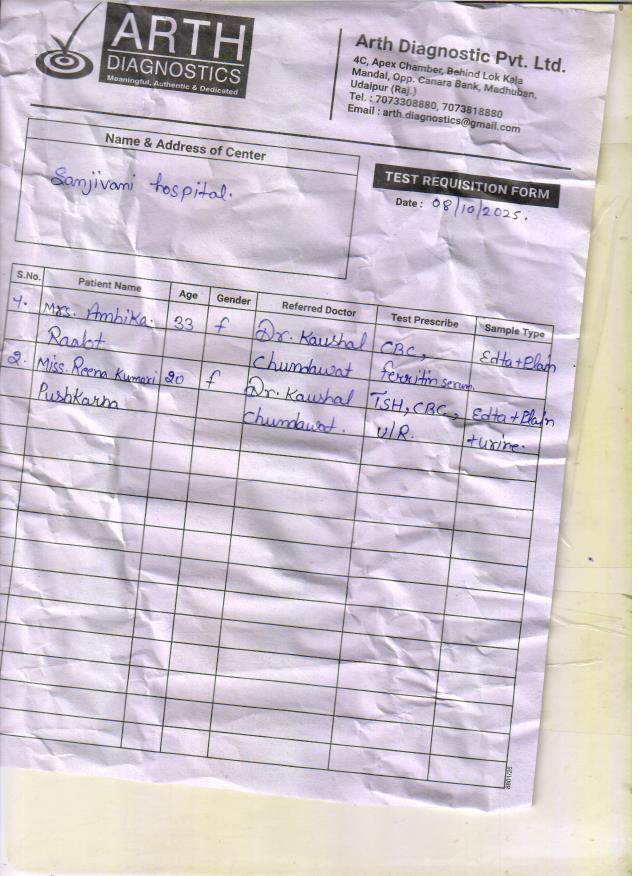 ARTH
DIAGNOSTICS
Meaningful, Authentic & Dedicated
Arth Diagnostic Pvt. Ltd.
4C, Apex Chamber, Behind Lok Kala
Mandal, Opp. Canara Bank, Madhuban,
Udaipur (Raj.)
Tel. : 7073308880, 7073818880
Email : arth.diagnostics@gmail.com
Name & Address of Center
Sanjivani hospital.
TEST REQUISITION FORM
Date : 08/10/2025.
S.No. Patient Name Age Gender Referred Doctor Test Prescribe Sample Type
1. Mrs. Ambika 33 f Dr. Kaushal CBC, Edta+Plain
Chundawat ferritin serum
2. Miss. Reena Kumari 20 f Dr. Kaushal TSH, CBC, Edta+Plain
Pushkarna Chundawat. U/R. +urine.